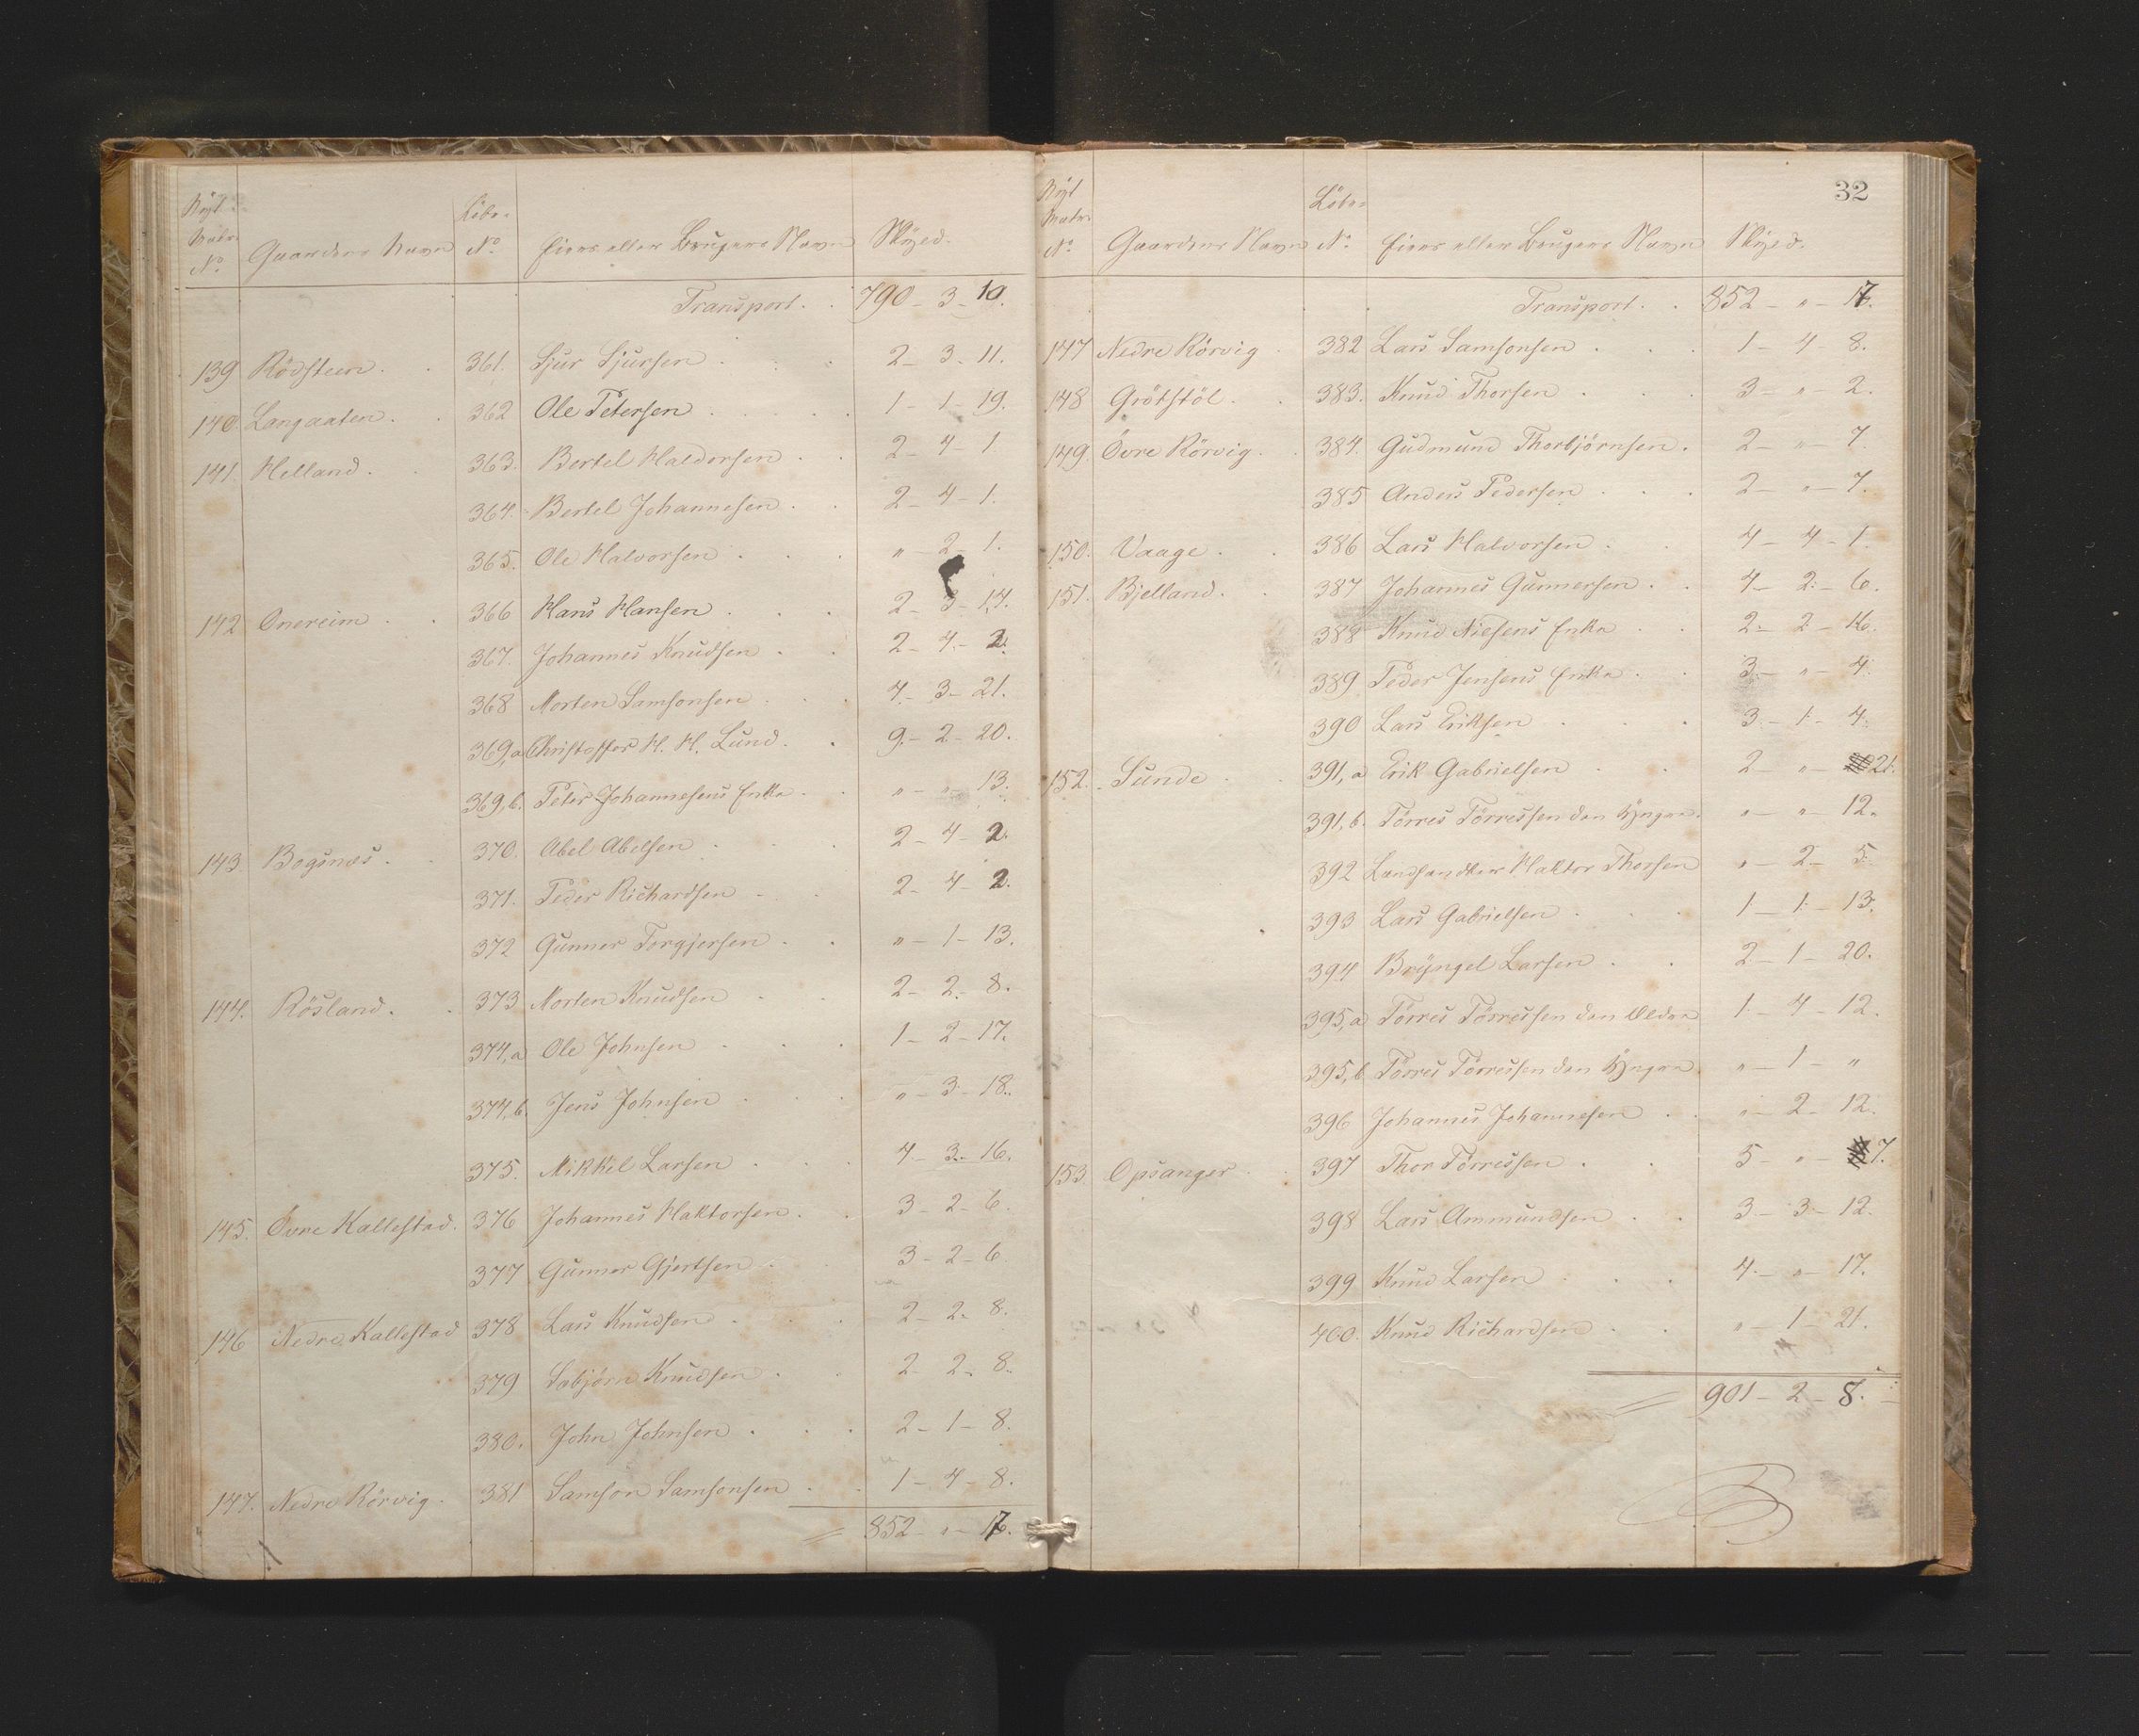 Nyt
Matr.
No Gaardens Navn Löbe-No Eiers eller Brugers Navn Skyld.
Transport. . 790 - 3 - 10.
139 Rödsteen. . 361. Sjur Sjursen . . . 2 - 3 - 11.
140 Langaaten. . 362 Ole Petersen . . . 1 - 1 - 19.
141. Helland. . 363. Bertel Haldorsen . . 2 - 4 - 1.
364. Bertel Johannesen . . 2 - 4 - 1.
365. Ole Halvorsen . . . " - 2 - 1.
142 Onereim . . 366 Hans Hansen . . . 2 - 3 - 14.
367. Johannes Knudsen . . 2 - 4 - 2.
368 Morten Samsonsen . . . 4 - 3 - 21.
369,a Christoffer H. H. Lund. . 9 - 2 - 20.
369,b. Peter Johannesens Enke . . " - " - 13.
143 Bogsnæs. . 370. Abel Abelsen . . . 2 - 4 - 2.
371. Peder Richardsen . . 2 - 4 - 2.
372 Gunner Torgjersen . . " - 1 - 13.
144. Rösland. . 373 Morten Knudsen . . 2 - 2 - 8.
374,a Ole Johnsen . . . 1 - 2 - 17.
374,b. Jens Johnsen . . . " - 3 - 18.
375. Mikkel Larsen . . . 4 - 3 - 16.
145. Övre Kallestad. 376 Johannes Haktorsen . . 3 - 2 - 6.
377 Gunner Gjertsen . . 3 - 2 - 6.
146 Nedre Kallestad 378 Lars Knudsen . . . 2 - 2 - 8.
379 Sæbjörn Knudsen . . 2 - 2 - 8.
380. John Johnsen . . . 2 - 1 - 8.
147. Nedre Rörvig. 381 Samson Samsonsen . . 1 - 4 - 8.
852 - " - 17.
32
Nyt
Matr.
No Gaardens Navn Löbe-No Eiers eller Brugers Navn Skyld.
Transport. . 852 - " - 17.
147 Nedre Rörvig . 382 Lars Samsonsen . . . 1 - 4 - 8.
148 Grötstöl. . 383. Knud Thorsen . . . 3 - " - 2.
149. Övre Rörvig. . 384. Gudmund Thorbjörnsen. 2 - " - 7.
385 Anders Pedersen . . . 2 - " - 7.
150. Vaage. . 386 Lars Halvorsen . . 4 - 4 - 1.
151. Bjelland. . 387 Johannes Gunnersen . . 4 - 2 - 6.
388 Knud Nielsens Enke . . 2 - 2 - 16.
389 Peder Jensens Enke . . 3 - " - 4.
390 Lars Eriksen . . . 3 - 1 - 4.
152. Sunde . . 391,a Erik Gabrielsen . . 2 - " - 21.
391,b. Törres Törressen den Yngre. " - " - 12.
392 Landhandler Haktor Thorsen " - 2 - 5.
393 Lars Gabrielsen . . . 1 - 1 - 13.
394 Bryngel Larsen . . 2 - 1 - 20.
395,a Törres Törressen den Ældre 1 - 4 - 12.
395,b Törres Törressen den Yngre " - 1 - "
396 Johannes Johannesen . . " - 2 - 12.
153. Opsanger . . 397 Thor Törressen . . 5 - " - 7.
398 Lars Ammundsen . . 3 - 3 - 12.
399 Knud Larsen . . . 4 - " - 17.
400. Knud Richardsen . . " - 1 - 21.
901 - 2 - 8.